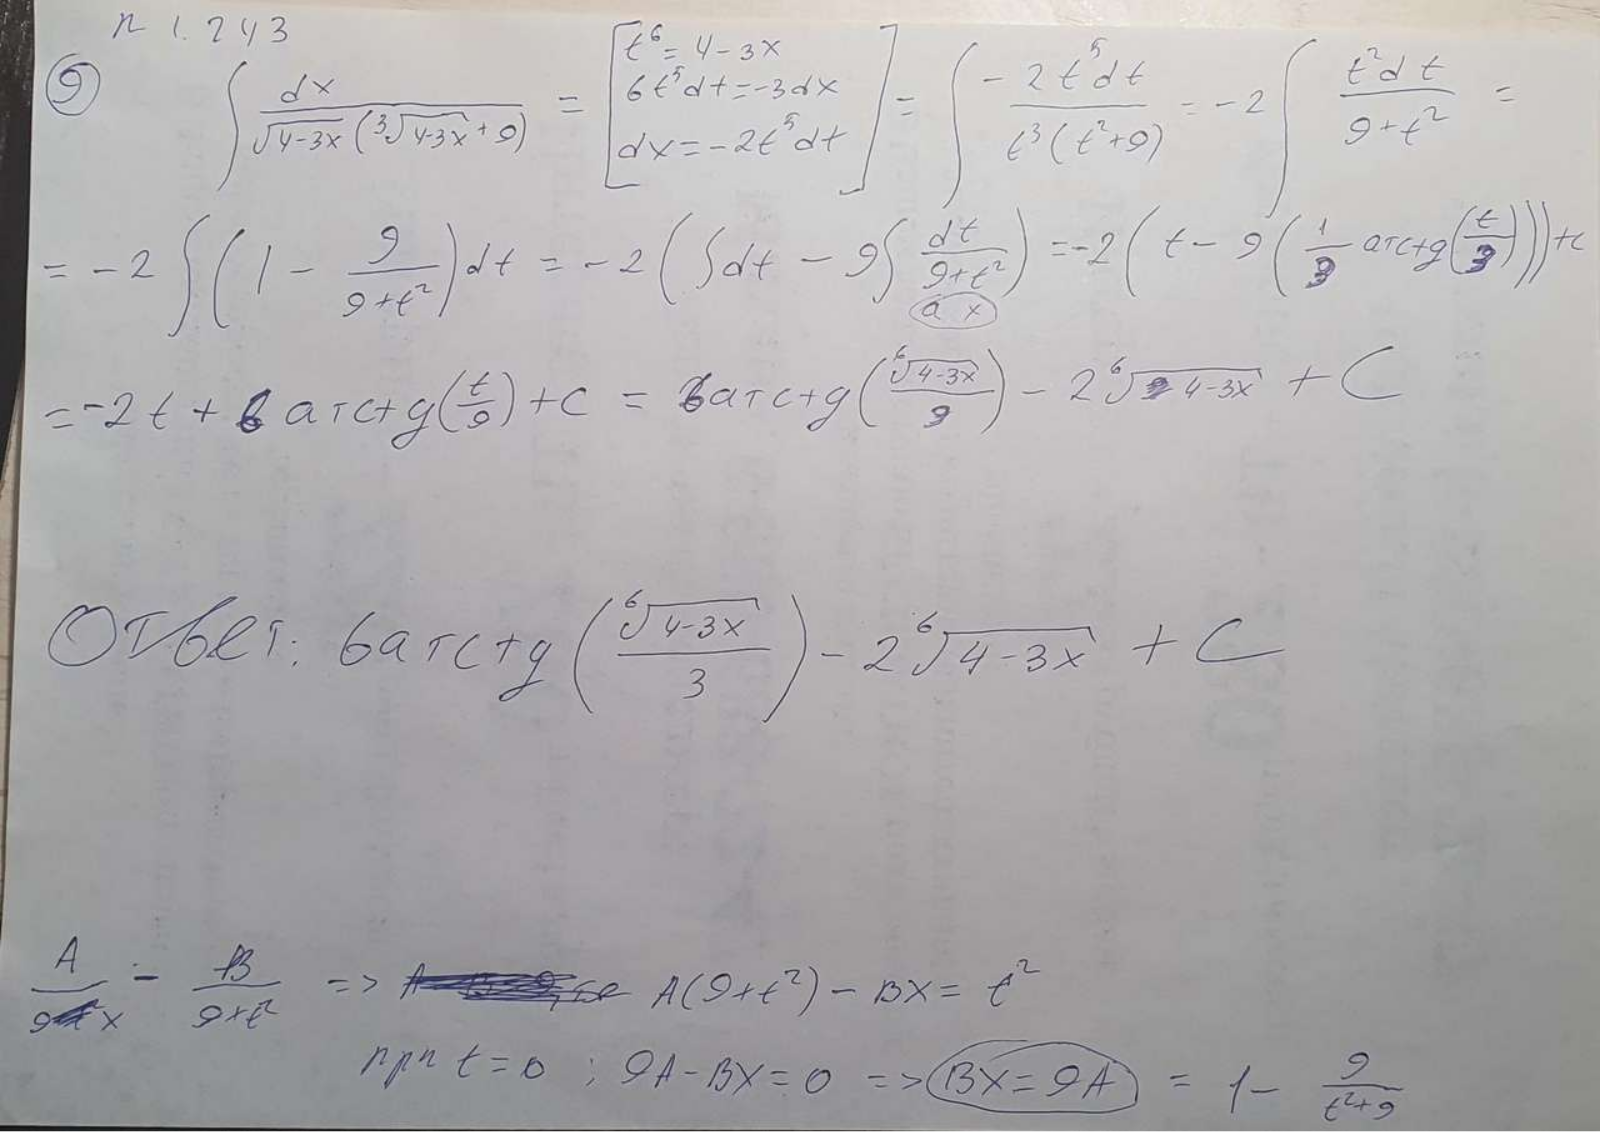 n 1.243
⑨ ∫ dx / (√(4-3x) (∛(4-3x) + 9)) = [t⁶ = 4-3x; 6t⁵dt = -3dx; dx = -2t⁵dt] = ∫ -2t⁵dt / (t³(t²+9)) = -2 ∫ t²dt / (9+t²) =
= -2 ∫ (1 - 9/(9+t²)) dt = -2 (∫dt - 9∫ dt/(9+t²)) = -2 (t - 9 (1/3 arctg(t/3))) + c
a x
= -2t + 6 arctg(t/9) + c = 6arctg(⁶√(4-3x) / 9) - 2 ⁶√(4-3x) + C
Ответ: 6arctg(⁶√(4-3x) / 3) - 2 ⁶√(4-3x) + C
A/x - B/(9+t²) => A(9+t²) - Bx = t²
при t=0 ; 9A-Bx=0 => Bx=9A = 1 - 9/(t²+9)